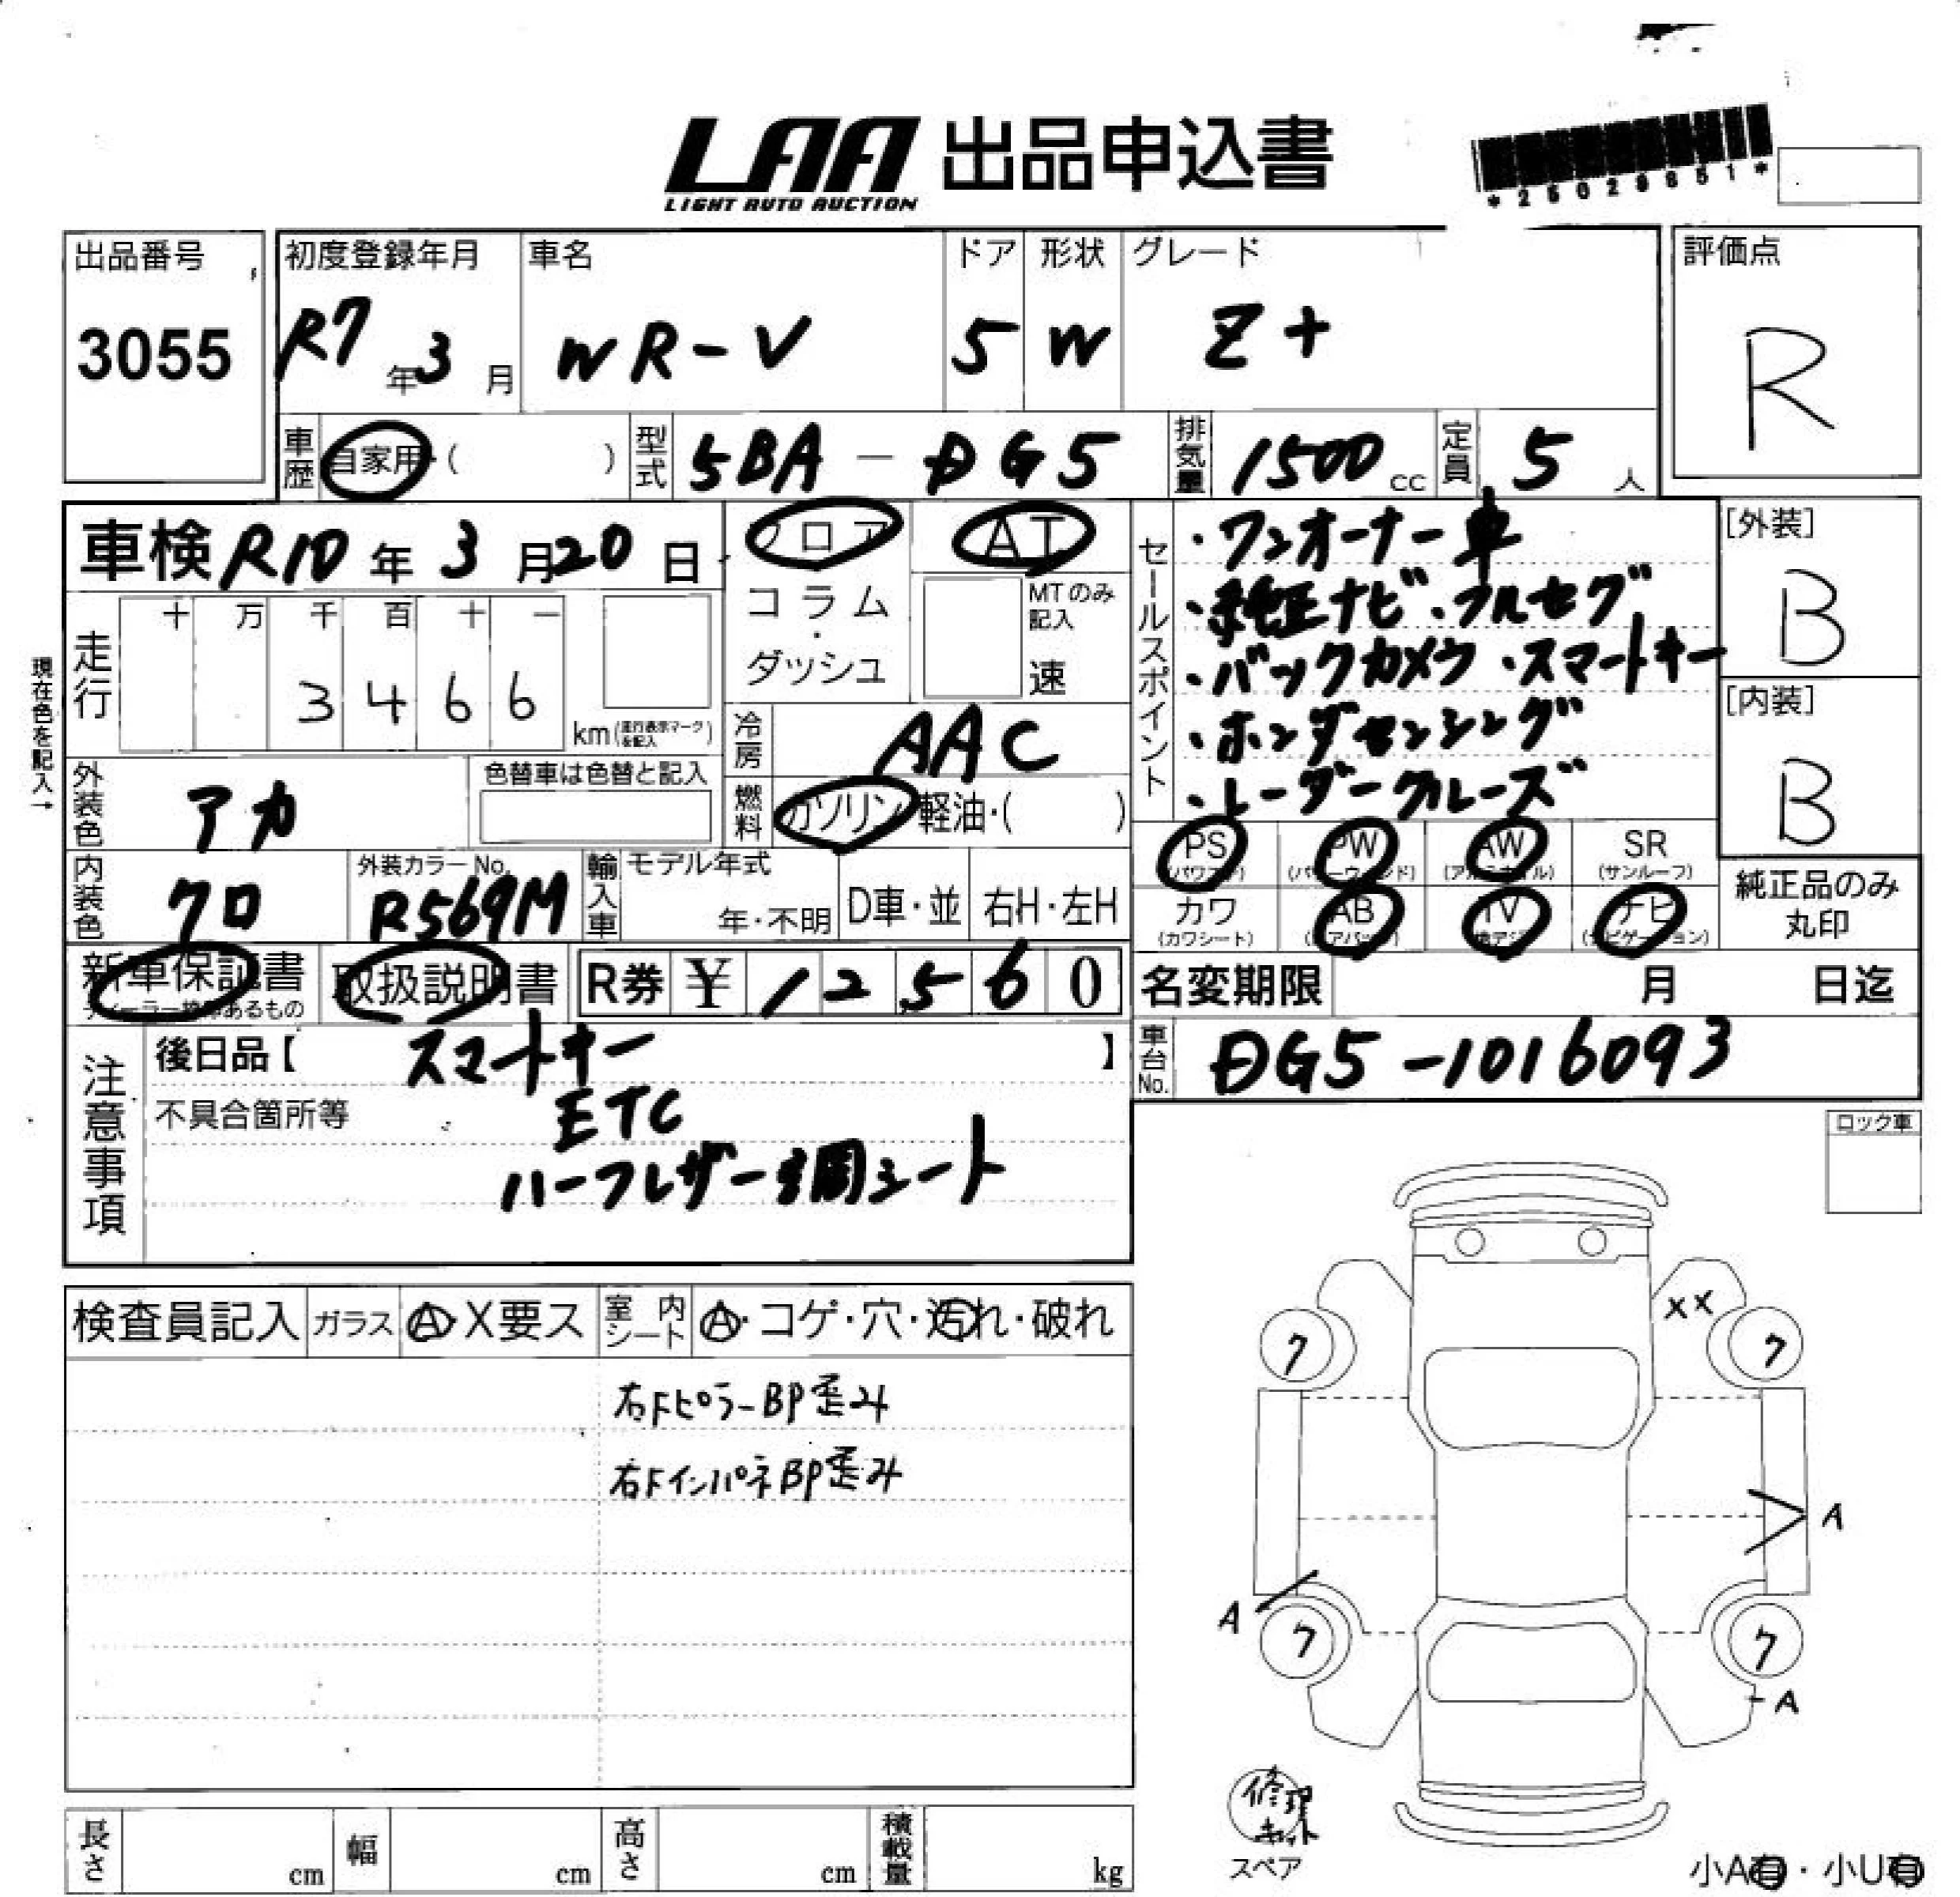 LAA 出品申込書
LIGHT AUTO AUCTION
出品番号 初度登録年月 車名 ドア 形状 グレード 評価点
3055 R7年3月 WR-V 5 W Z+ R
車歴 自家用・( ) 型式 5BA-DG5 排気量 1500cc 定員 5人
車検 R10年3月20日 フロア AT
コラム・ダッシュ MTのみ記入 速
現在色を記入→
走行 十 万 千 百 十 一
3 4 6 6 km(走行表示マークを記入)
冷房 AAC
外装色 アカ 色替車は色替と記入 燃料 ガソリン・軽油・( )
内装色 クロ 外装カラーNo. R569M 輸入車 モデル年式 年・不明 D車・並 右H・左H
新車保証書 取扱説明書 R券 ¥ 12560
セールスポイント
・ワンオーナー車
・純正ナビ・フルセグ
・バックカメラ・スマートキー
・ホンダセンシング
・レーダークルーズ
[外装] B
[内装] B
PS PW AW SR
(パワステ) (パワーウィンド) (アルミホイル) (サンルーフ)
カワ AB TV ナビ
(カワシート) (エアバッグ) (地デジ) (ナビゲーション)
純正品のみ丸印
名変期限 月 日迄
車台No. DG5-1016093
注意事項
後日品【 スマートキー 】
不具合箇所等 ETC
ハーフレザー調シート
ロック車
検査員記入 ガラス A・X要ス 室内シート A・コゲ・穴・汚れ・破れ
右FピラーBP歪み
右FインパネBP歪み
XX
ク ク
A
A
ク ク
A
修理キット
スペア
小A有・小U有
長さ cm 幅 cm 高さ cm 積載量 kg